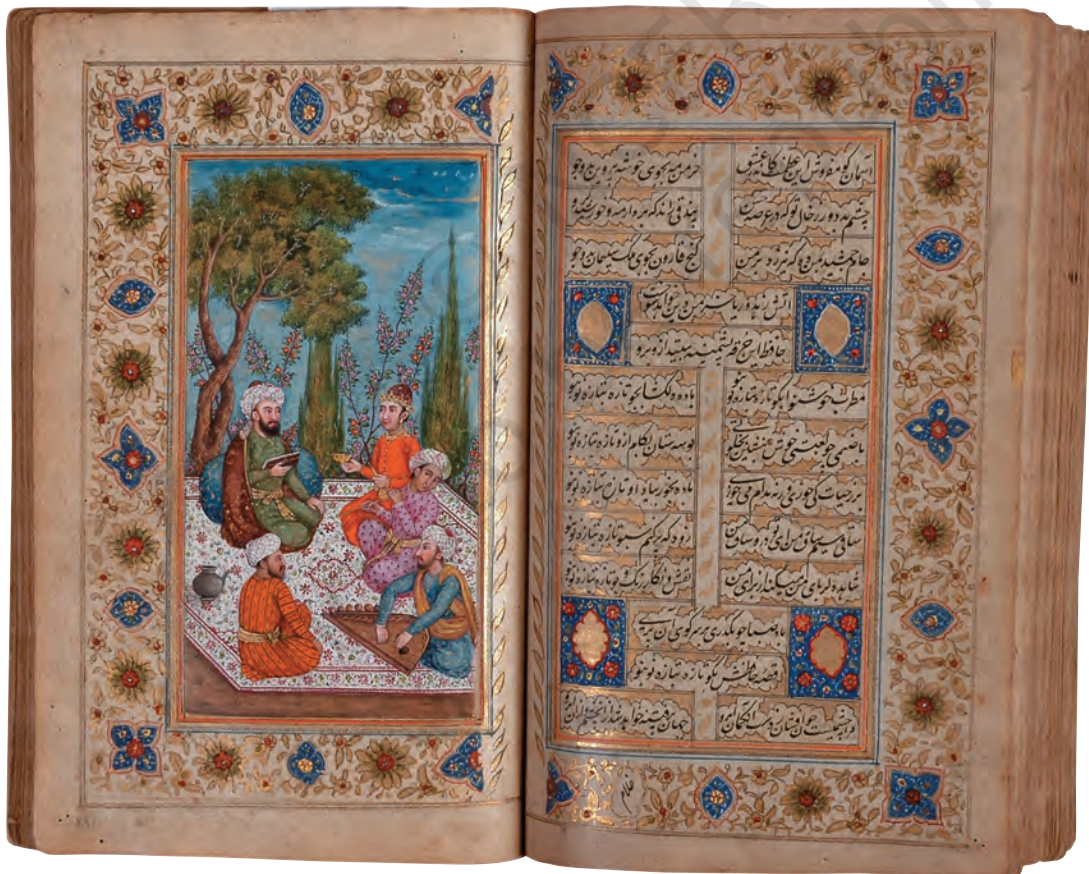 آسمان گو مفروش این عظمت کاندر عشق
خرمن مه بجوی خوشه پروین بدو جو
چشم بد دور ز خال تو که در عرصه حسن
بیدقی راند که برد از مه و خورشید گرو
جام جمشید بمن ده که نیرزد بر من
گنج قارون بجوی ملک سلیمان
آتش زهد و ریا خرمن دین خواهد سوخت
حافظ این خرقه پشمینه بینداز و برو
مطرب خوشنوا بگو تازه بتازه نو بنو
باده دلگشا بجو تازه بتازه نو بنو
با صنمی چو لعبتی خوش بنشین بخلوتی
بوسه ستان بکام ازو تازه بتازه نو بنو
بر ز حیات کی خوری گرنه مدام می خوری
باده بخور بیاد او تازه بتازه نو بنو
ساقی سیم ساق من
زود که پر کنم سبو تازه بتازه نو بنو
شاهد دلربای من میکند از برای من
نقش و نگار و رنگ و بو تازه بتازه نو بنو
باد صبا چو بگذری بر سر کوی آن پری
قصه حافظش بگو تازه بتازه نو بنو
مرا چشمیست خون افشان ز دست آن کمان ابرو
جهان بس فتنه خواهد دید از آن چشم و از آن ابرو